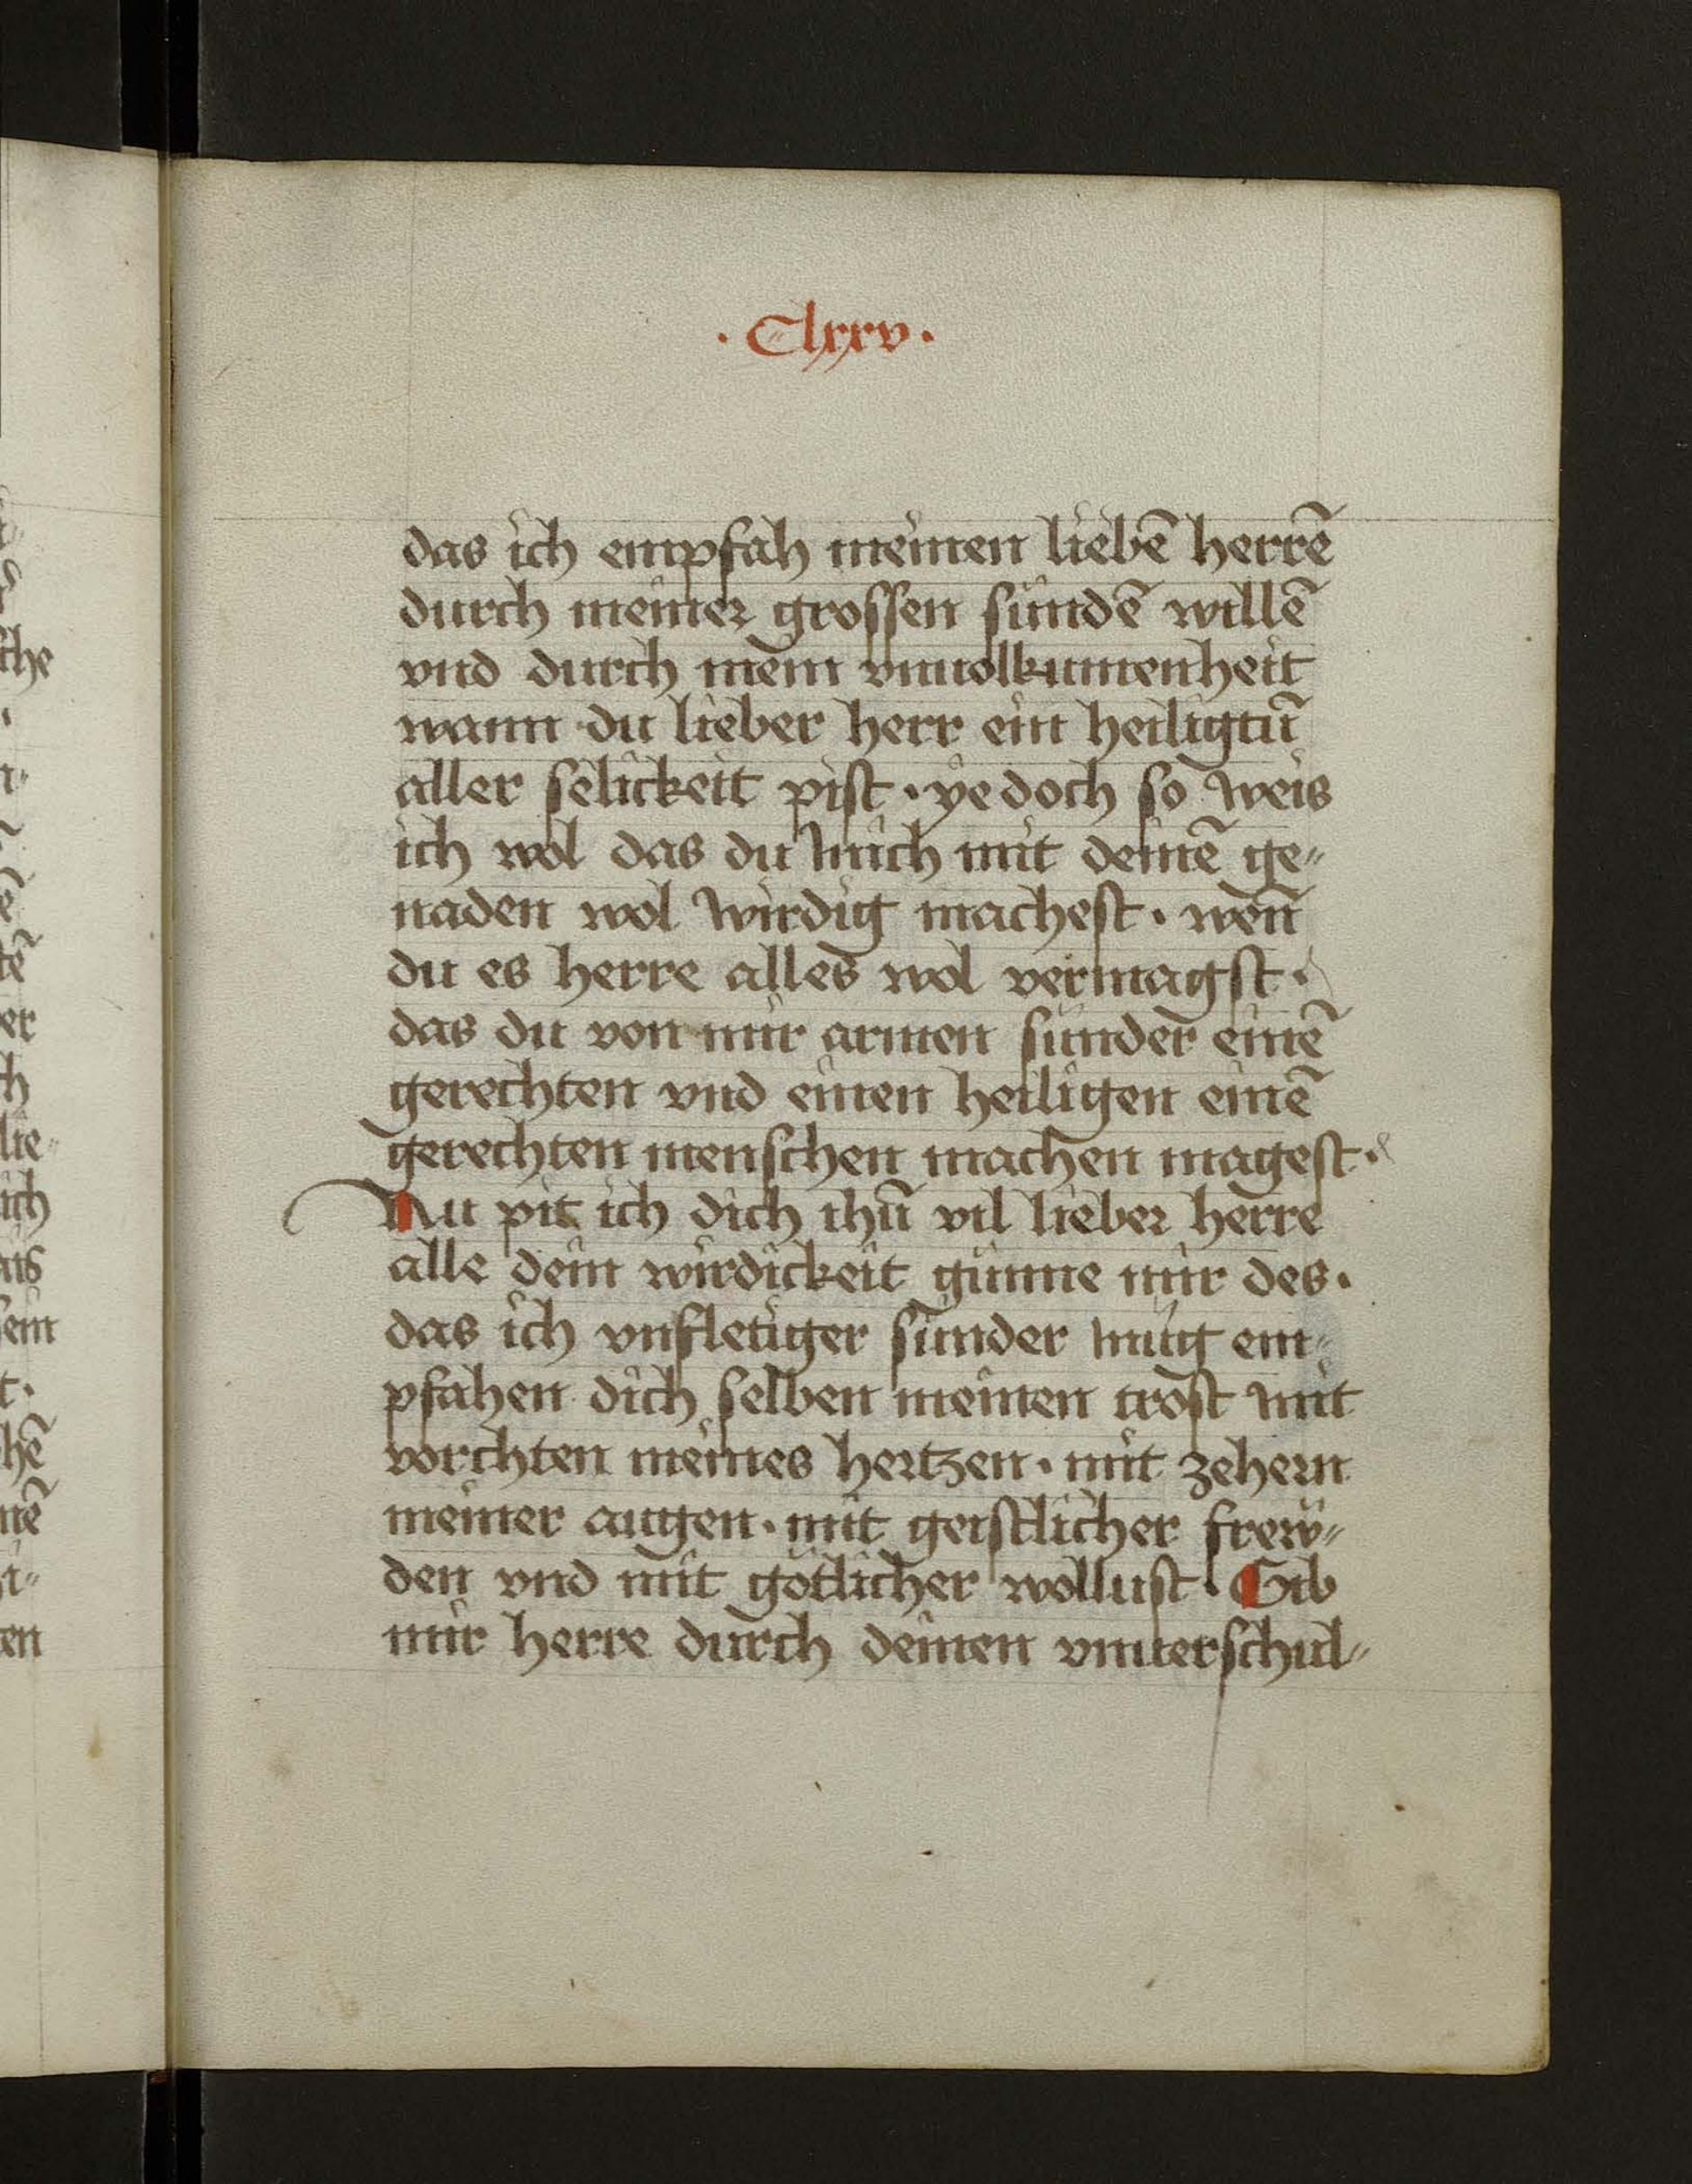 · Clxxv ·
das ich empfah meinen liebē herrē
durch meiner grossen sündē willē
vnd durch mein vnuolkumenheit
wann du lieber herr ein heiligtū
aller selickeit pist · yedoch so weis
ich wol das du mich mit deinē ge⸗
naden wol wirdig machest · wen̄
du es herre alles wol vermagst ·
das du von mir armen sünder einē
gerechten vnd einen heiligen einē
gerechten menschen machen magest ·
Nu pit ich dich ihū vil lieber herre
alle dein wirdickeit günne mir des ·
das ich vnfletiger sünder müg em⸗
pfahen dich selben meinen trost mit
vorchten meines hertzen · mit zehern
meiner augen · mit geistlicher frew⸗
den vnd mit götlicher wollust · Gib
mir herre durch deinen vnuerschul⸗